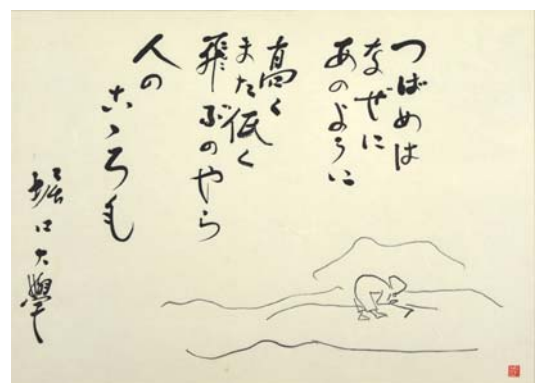 つばめは
なぜに
あのように
高く
また低く
飛ぶのやら
人の
こゝろも
堀口大學